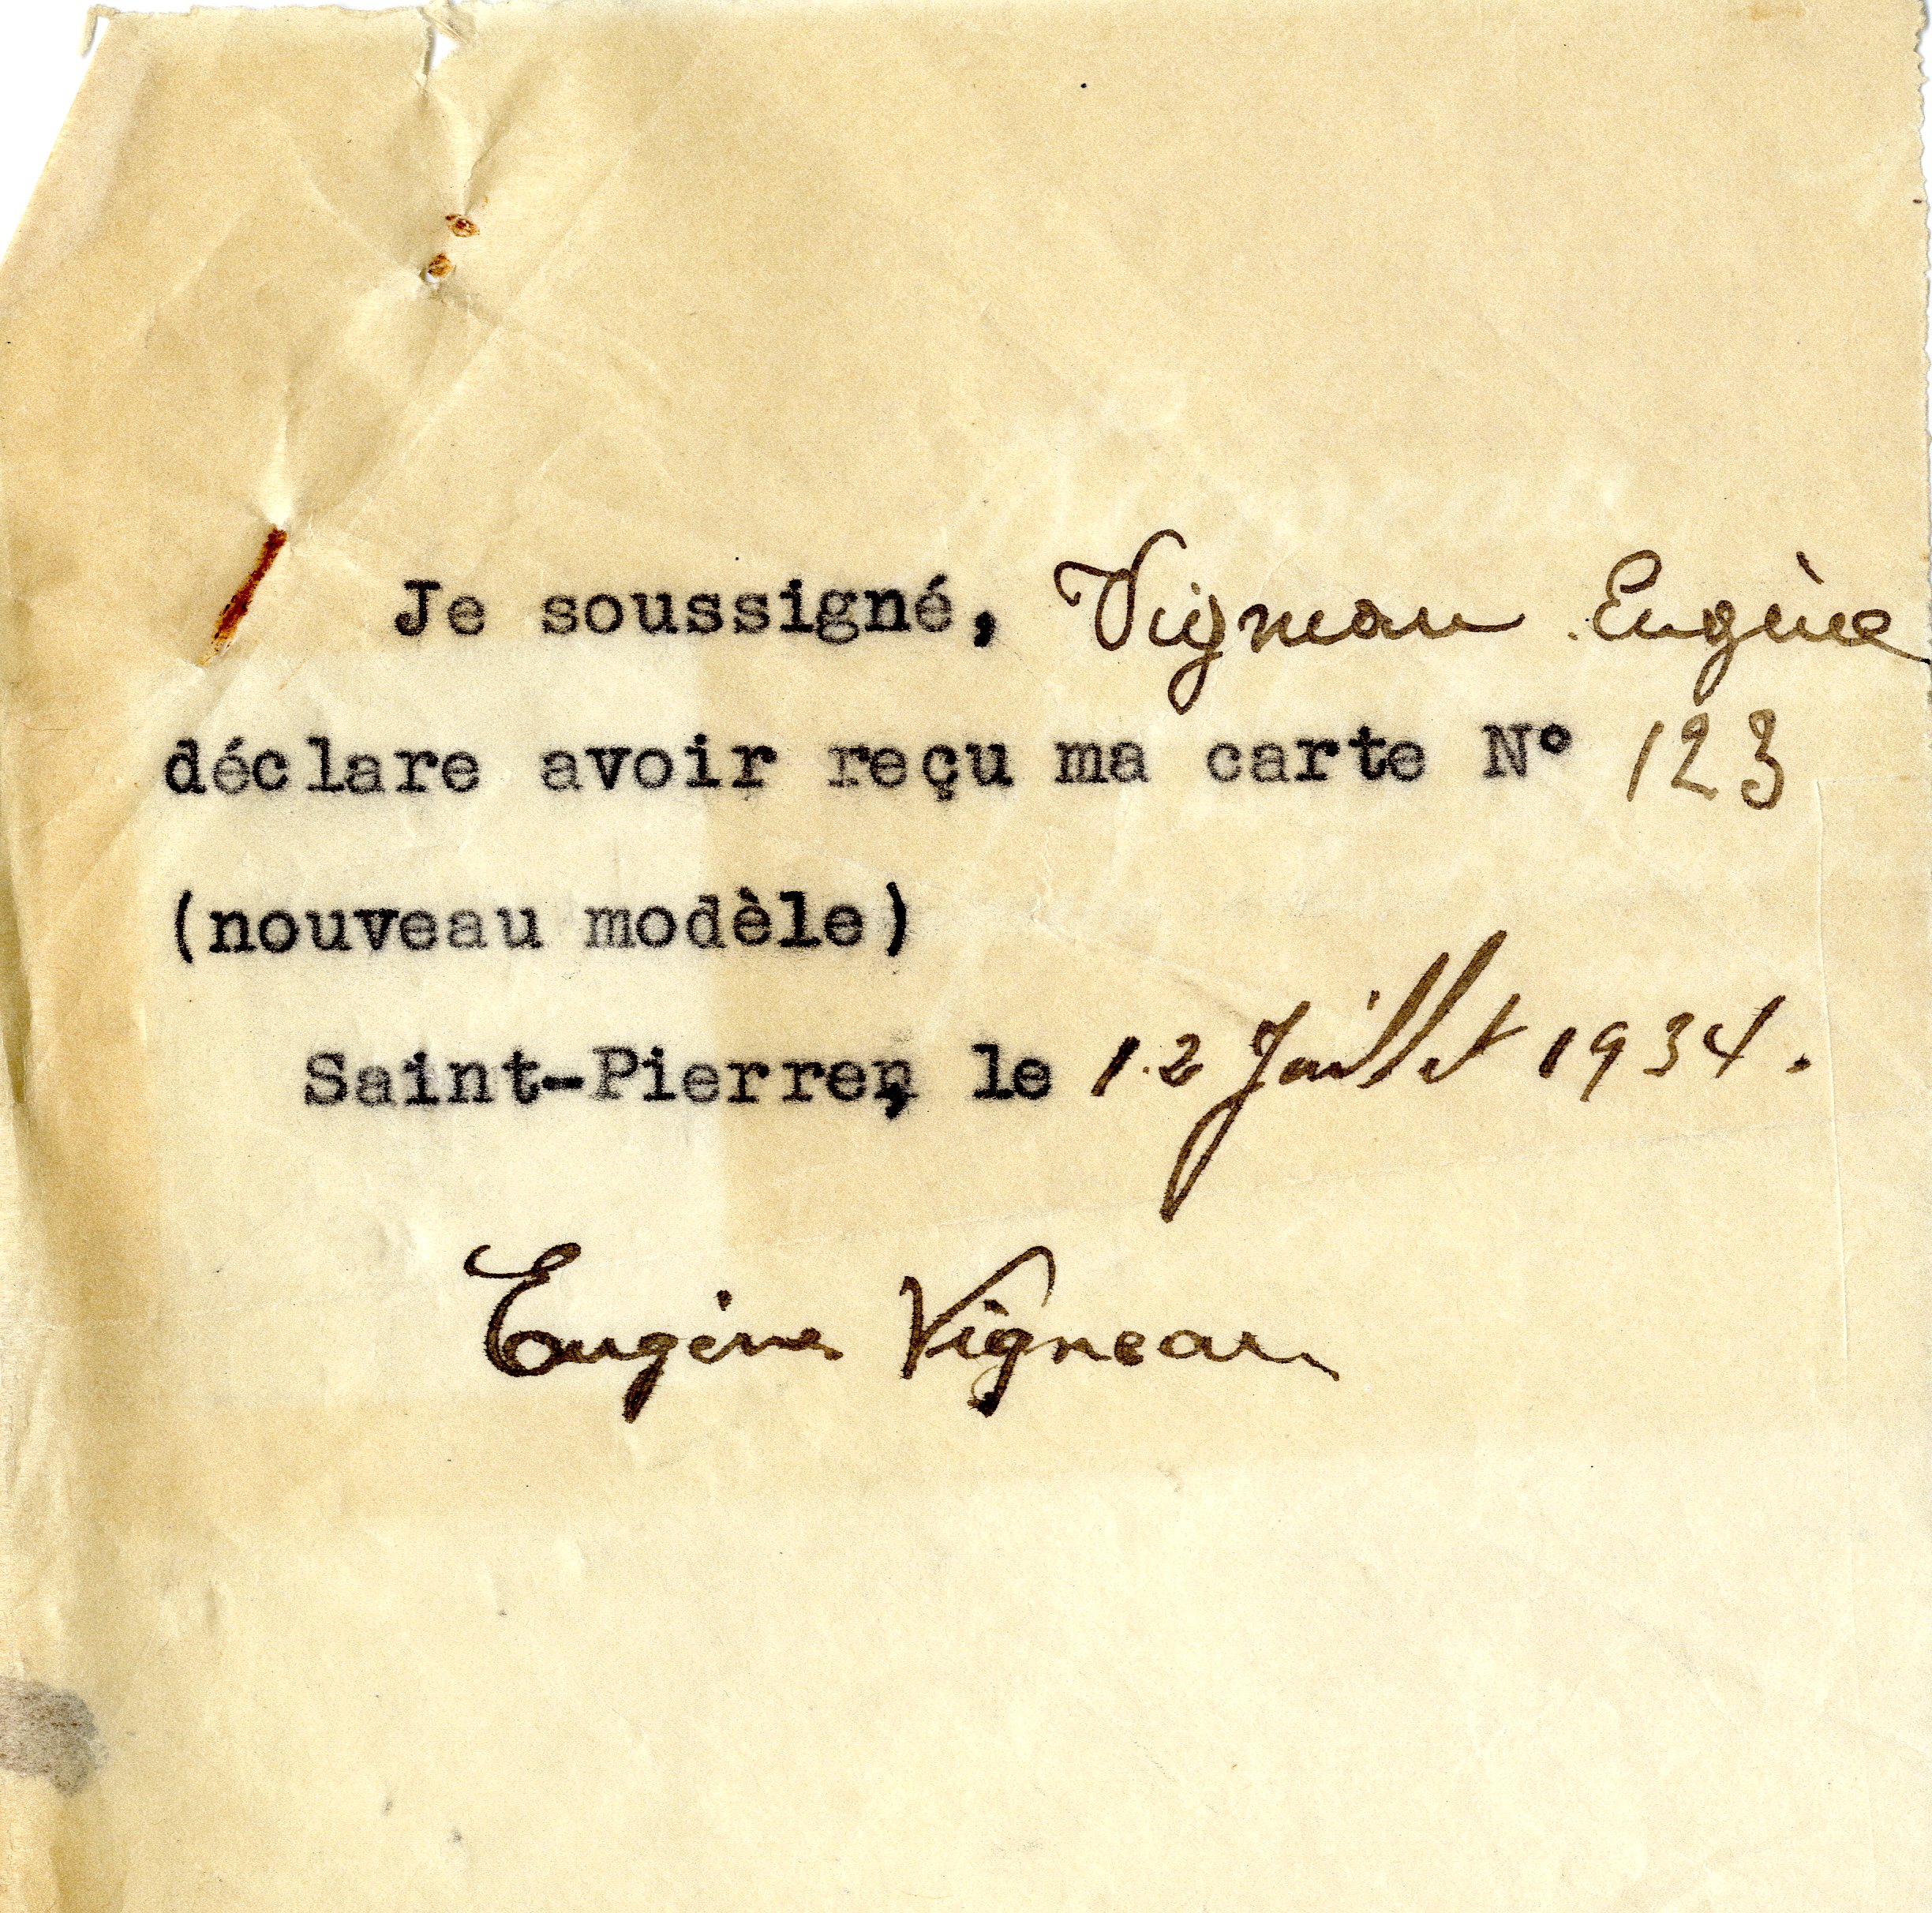 Je soussigné, Vigneau Eugène
déclare avoir reçu ma carte N° 123
(nouveau modèle)
Saint-Pierre, le 12 Juillet 1934.
Eugène Vigneau